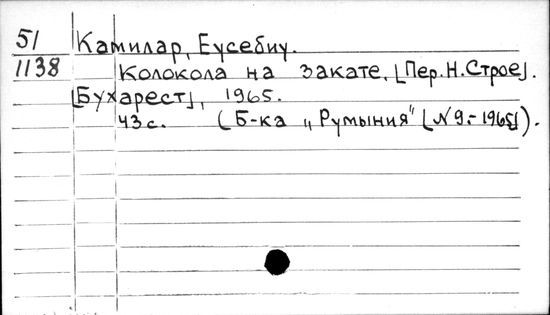 51 Камилар, Еусебиу.
1138 Колокола на закате. [Пер. Н. Строе].
[Бухарест], 1965.
43 с. (Б-ка „Румыния" [N 9.-1965]).